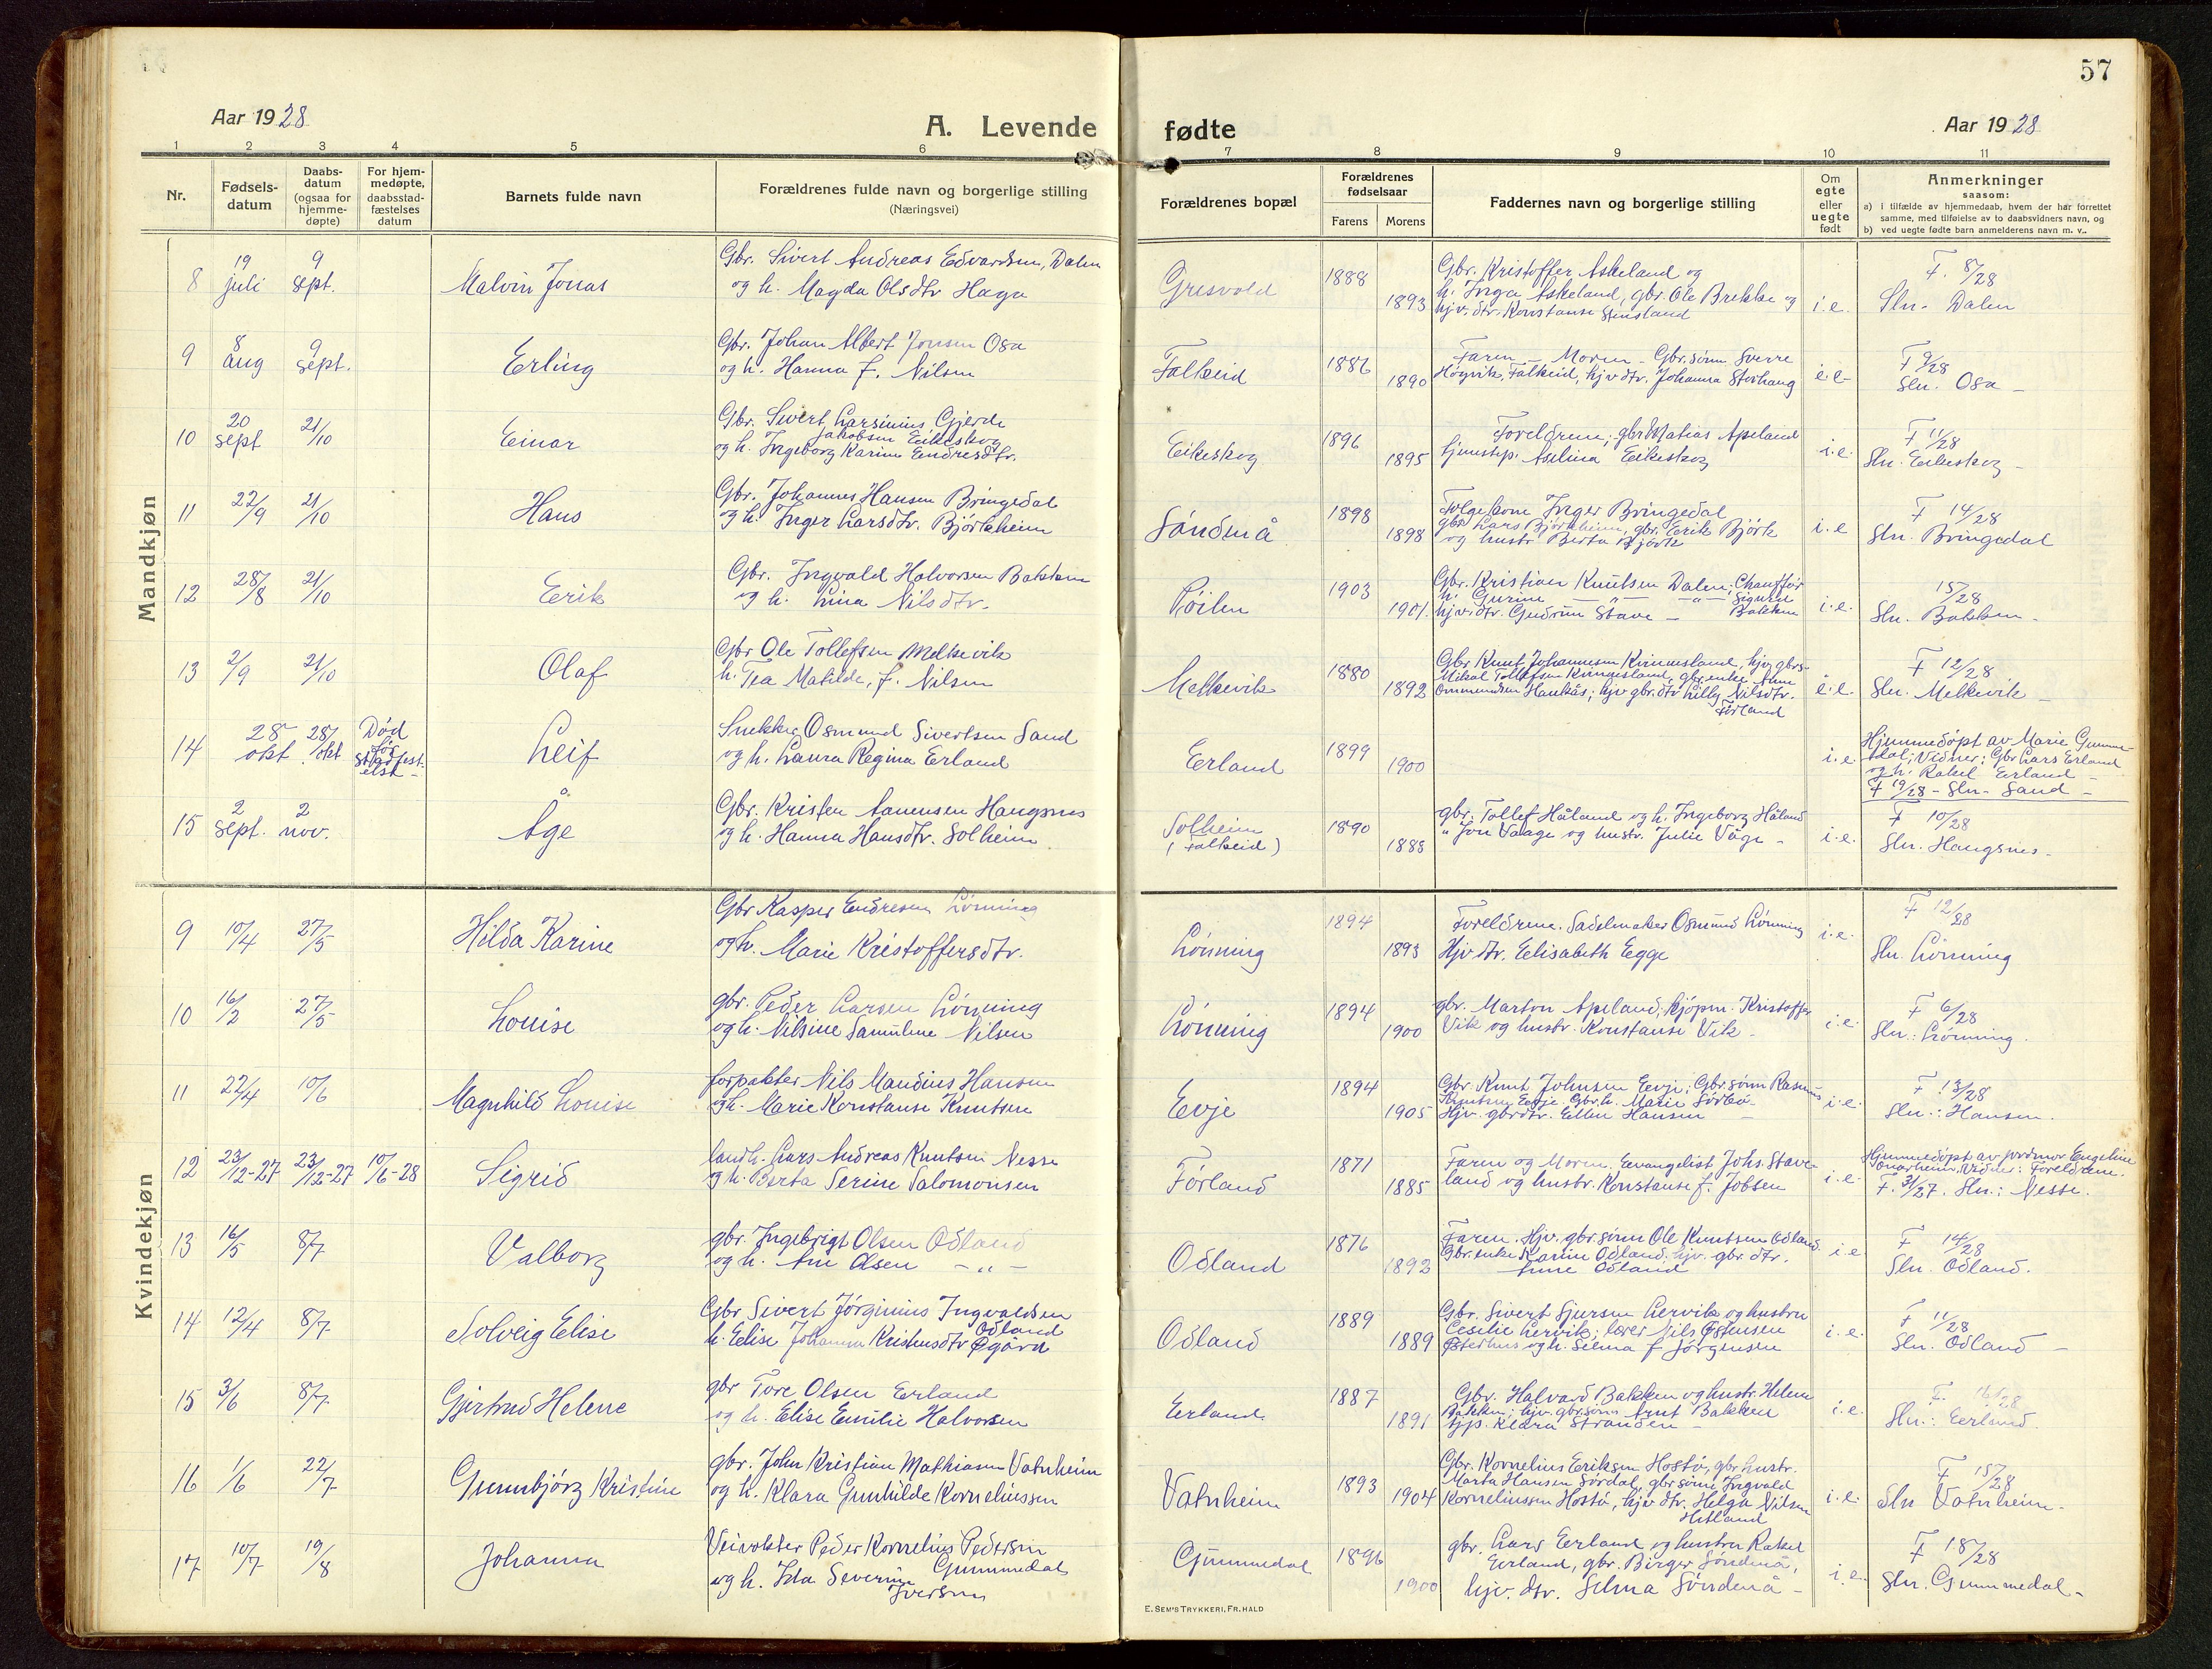 57
Aar 1928
A. Levende
fødte
Aar 1928
1 2 3 4 5 6 7 8 9 10 11
Nr.
Fødsels-
datum
Daabs-
datum
(ogsaa for
hjemme-
døpte)
For hjem-
medøpte,
daabsstad-
fæstelses
datum
Barnets fulde navn
Forældrenes fulde navn og borgerlige stilling
(Næringsvei)
Forældrenes bopæl
Forældrenes
fødselsaar
Farens
Morens
Faddernes navn og borgerlige stilling
Om
egte
eller
uegte
født
Anmerkninger
saasom:
a) i tilfælde av hjemmedaab, hvem der har forrettet
samme, med tilføielse av to daabsvidners navn, og
b) ved uegte fødte barn anmelderens navn m. v..
Mandkjøn
8 19 juli 9 sept. Malvin Jonas
Gbr. Sivert Andreas Edvardsen, Dalen
og h. Magda Olsdtr Haga
Gresvold 1888 1893
Gbr. Kristoffer Askeland og
h. Inga Askeland, gbr. Ole Brekke og
hjv. dtr. Konstanse Stensland
i.e.
F. 8/28
Sln. Dalen
9 8 aug 9 sept. Erling
Gbr. Johan Albert Jonsen Osa
og h. Hanna f. Nilsen
Falkeid 1886 1890
Faren – Moren – Gbr. sønn Sverre
Høyvik, Falkeid, hjv dtr. Johanna Storhaug
i.e.
F 9/28
Sln. Osa –
10 20 sept 21/10 Einar
Gbr. Sivert Larsinius Gjerde
Jakobsen Eikeskog
og h. Ingeborg Karine Endresdtr.
Eikeskog 1896 1895
Foreldrene; gbr Matias Apeland
tjenestep. Aselina Eikeskog
i.e.
F 11/28
Sln. Eikeskog –
11 22/9 21/10 Hans
Gbr. Johannes Hansen Bringedal
og h. Inger Larsdtr. Bjørkheim
Søndenå 1898 1898
Inger Bringedal
gbr Lars Bjørkheim, gbr. Eerik Bjørk
og hustr Berta Bjørk
i.e
F 14/28
Sln. Bringedal
12 28/8 21/10 Erik
Gbr. Ingvald Halvorsen Bakken
og h. Lina Nilsdtr.
1903 1901.
Gbr. Kristian Knutsen Dalen; Chauffør
h. Gurine – " – – " – Sigurd
hjv. dtr. Gudrun Stave – Bakken
i.e.
15/28
Sln. Bakken.
13 2/9 21/10 Olaf
Gbr Ole Tollefsen Melkevik
h. Tea Matilde, f. Nilsen
Melkevik 1880 1892
Gbr Knut Johannesen Kvinnesland, hjv gbrs-
Mikal Tollefsen Kvinnesland, gbr.enke Anne
Ommundsen Haukås; hjv gbr.dtr Lilly Nilsdtr.
Førland
i.e.
F 12/28
Sln. Melkevik –
14 28 okt 28/okt Død
før
stadfest-
else –
Leif
Snekker Osmund Sivertsen Sand
og h. Laura Regina Erland
Eerland 1899 1900
i.e.
Hjemmedøpt av Marie Gumme-
dal; Vidner: Gbr Lars Erland
og h. Rakel Eerland –
F 19/28 – Sln. Sand –
15 2 sept. 2 nov. Åge
Gbr. Kristen Aanensen Haugsnes
og h. Hanna Hansdtr. Solheim
Solheim
(Falkeid)
1890 1888
gbr. Tollef Håland og h. Ingeborg Håland
" Jon Vaage og hustr. Julie Våge –
i.e.
F 10/28
Sln. Haugsnes –
Kvindekjøn
9 10/4 27/5 Hilda Karine
Gbr Kasper Endresen Lønning
og h. Marie Kristoffersdtr.
Lønning 1894 1893
Foreldrene. Sadelmaker Osmund Lønning
Hjv. dtr. Eelisabeth Egge
i.e.
F 12/28
Sln. Lønning
10 16/2 27/5 Louise
gbr. Peder Larsen Lønning
og h. Nilsine Samuline Nilsen
Lønning 1894 1900
gbr. Marton Apeland; kjøpm. Kristoffer
Vik og hustr. Konstanse Vik –
i.e.
F 6/28
Sln.: Lønning.
11 22/4 10/6 Magnhild Louise
forpakter Nils Maudius Hansen
og h. Marie Konstanse Knutsen
Eevje 1894 1905
Gbr. Knut Johnsen Eevje; Gbr.sønn Rasmus
Knutsen Eevje. Gbr.h. Marie Sørbø
Hjv. gbrdtr. Ellen Hansen –
i.e.
F 13/28
Sln.: Hansen.
12 23/12-27 23/12-27 10/6-28 Sigrid
landh. Lars Andreas Knutsen Nesse
og h. Berta Serine Salomonsen
Førland 1871 1885
Faren og Moren. Eevangelist Johs. Stave-
land og hustr. Konstanse f. Jobsen
i.e.
Hjemmedøpt av jordmor Engeline
Vidner: Foreldrene.
F. 31/27. Sln.: Nesse.
13 16/5 8/7 Valborg
gbr. Ingebrigt Olsen Odland
og h. Ane Olsen – " –
Odland 1876 1892
Faren. Hjv. gbr.sønn Ole Knutsen Odland.
Gbr.enke Karine Odland. hjv. gbr. dtr.
Anne Odland
i.e
F 14/28
Sln. Odland.
14 12/4 8/7 Solveig Elise
Gbr Sivert Jørginius Ingvaldsen
Odland
h. Elise Johanna Kristensdtr Øgård
Odland 1889 1889
Gbr. Sivert Sjursen Lervik og hustru
Cesilie Lervik; lærer Nils Østensen
Østerhus og h. Selma f Jørgensen
i.e.
F 11/28
Sln. Odland –
15 3/6 8/7 Gjertrud Helene
gbr Tore Olsen Eerland
og h. Elise Emilie Halvorsen
Eerland 1887 1891
Gbr. Halvard Bakken og hustr. Helene
Bakken; hjv. gbr.sønn Arnt Bakken
tjp. Klara Stranden –
i.e.
F. 16/28
Sln.: Eerland.
16 1/6 22/7 Gunnbjørg Kristine
gbr. John Kristian Mathiasen Vatnheim
og h. Klara Gunhilde Korneliussen
Vatnheim 1893 1904
Gbr. Kornelius Eeriksen Hostø, gbr hustr.
Marta Hansen Sørdal, gbr sønn Ingvald
Korneliussen Hostø, hjv dtr. Helga Nilsen
Hetland
i.e.
F 15/28
Sln Vatnheim –
17 10/7 19/8 Johanna
Veivokter Peder Kornelius Pedersen
Gummedal
og h. Ida Severine
Iversen
Gummedal 1896 1900
gbr. Lars Eerland og hustru Rakel
Eerland, gbr. Birger Søndenå,
hjv. dtr. Selma Søndenå –
i.e.
F 18/28
Sln. Gummedal –
E. SEM'S TRYKKERI, FR.HALD